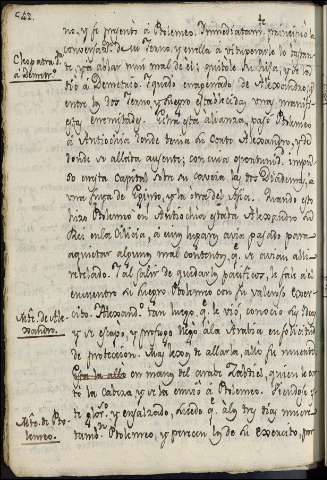 542.
no, y se presentó a Ptolemeo. Inmediatam.te principió la
conversaz.n de su Yerno, y en ella a vituperarle lo bastan-
te, y a ablar mui mal de el; quitole su hija, y se la
dio a Demetrio. Y quedo empeorado de Alexandro, y
entre los dos Yerno, y Suegro establecida, una manifi-
esta enemistad. Echa esta alianza, paso Ptolemeo
a Antiochia donde tenia su Corte Alexandro, y de
donde se allava ausente; con cuia oportunid. impu-
so en esta Capital sobre su caveza las dos Diademas, la
una suya de Egipto, y la otra del Asia. Quando esto
hizo Ptolemeo en Antiochia estava Alexandro su
Rei en la Cilicia, a cuio lugar avia pasado para
aquietar algunos mal contentos q.e se avian alli
revelado. Y al salir de quedarlos pacificos, le sale al
encuentro su Suegro Ptolemeo con su valeroso exer-
cito. Alexand. tan luego q.e le vio, conocio su
y se escapo, y profugo llego a la Arabia en solicitud
de protección. Mas lexos de allarla, allo su muerte
en manos del arabe Zabdiel, quien le cor-
to la caveza y se la envio a Ptolemeo. Siendo es-
te glorioso, y ensalzado, sucede q.e a los tres dias muere
tamb.n Ptolemeo, y perecen los de su exercito, por
Cleopatra d.da
a Demetr.
Mte. de Ale-
xandro.
Mte. de Pto-
lemeo.